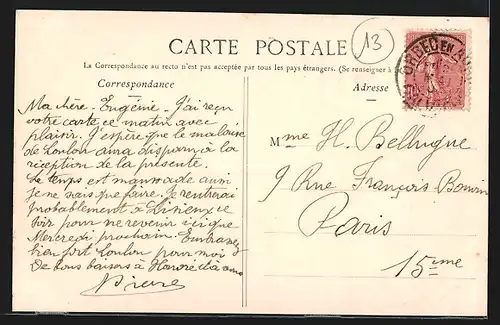 13
CARTE POSTALE
La Correspondance au recto n'est pas acceptée par tous les pays étrangers. (Se renseigner à
Correspondance
Adresse
Ma chère Eugénie - J'ai reçu
votre carte ce matin avec
plaisir. J'espère que le malaise
de Loulou aura disparu à la
réception de la présente.
Le temps est maussade aussi
je ne sais que faire. Je rentrerai
probablement à Lisieux ce
soir pour ne revenir ici que
Mercredi prochain. Embrassez
bien fort Loulou pour moi
De bons baisers à Honoré et à
Pierre
Mme H. Bellugue
9 Rue François-Bonvin
Paris
15ème